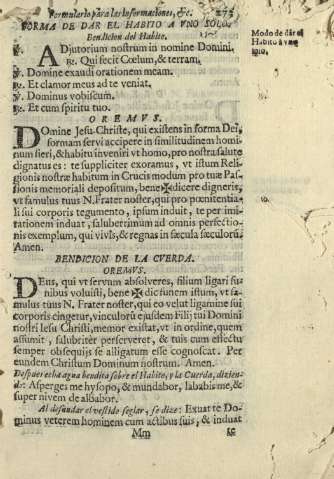 Formulario para las Informaciones, &c. 275
FORMA DE DAR EL HABITO A VNO SOLO.
Bendicion del Habito.
Modo de dar el
Habito à vno
solo.
ADjutorium nostrum in nomine Domini,
℟. Qui fecit Cœlum, & terram,
℣. Domine exaudi orationem meam.
℟. Et clamor meus ad te veniat.
℣. Dominus vobiscum.
℟. Et cum spiritu tuo.
OREMVS.
DOmine Jesu-Christe, qui existens in forma Dei,
formam servi accipere in similitudinem homi-
num fieri, & habitu inveniri vt homo, pro nostra salute
dignatus es: te suppliciter exoramus, vt istum Reli-
gionis nostræ habitum in Crucis modum pro tuæ Pas-
sionis memoriali depositum, bene✠dicere digneris,
vt famulus tuus N. Frater noster, qui pro pœnitentia
li sui corporis tegumento, ipsum induit, te per imi-
tationem induat, saluberrimum ad omnis perfectio-
nis exemplum, qui vivis, & regnas in sæcula sæculorũ.
Amen.
BENDICION DE LA CVERDA.
OREMVS.
DEus, qui vt servum absolveres, filium ligari fu-
nibus voluisti, bene✠dic funem istum, vt fa-
mulus tuus N. Frater noster, qui eo velut ligamine sui
corporis cingetur, vinculorũ ejusdem Filij tui Domini
nostri Iesu Christi, memor existat, vt in ordine, quem
assumit, salubriter perserveret, & tuis cum effectu
semper obsequijs se alligatum esse cognoscat. Per
eundem Christum Dominum nostrum. Amen.
Despues echa agua bendita sobre el Habito, y la Cuerda, dizien-
do: Asperges me hysopo, & mundabor, lababis me, &
super nivem de albabor.
Al desnudar el vestido seglar, se dize: Exuat te Do-
minus veterem hominem cum actibus suis, & induat
Mm te